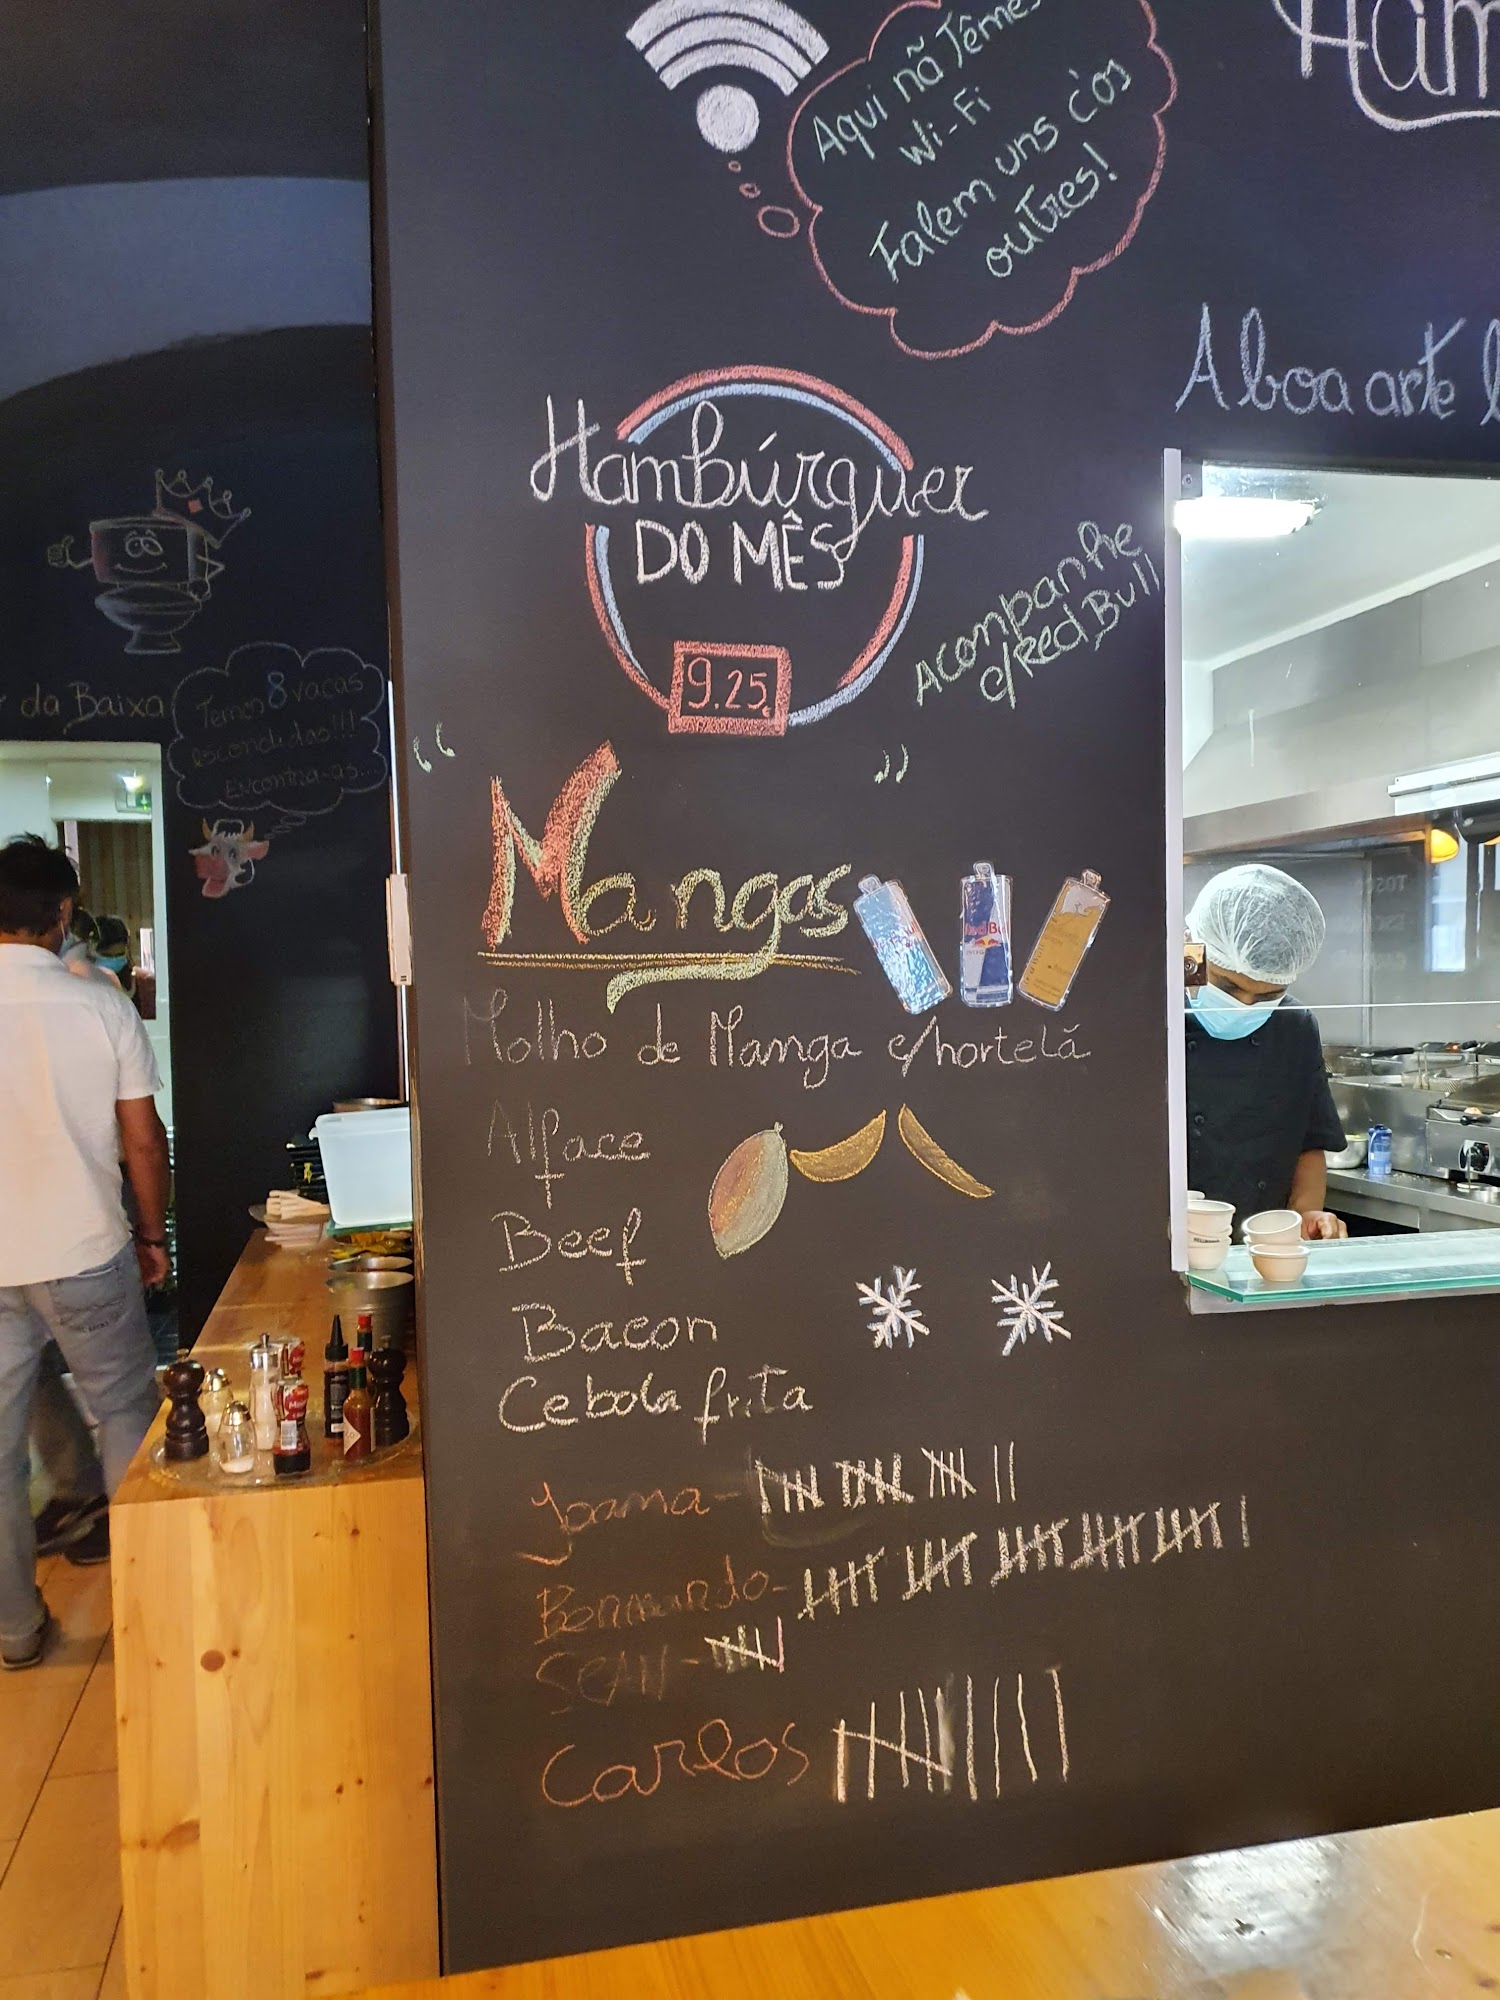 Aqui nã Têmes
Wi-Fi
Falem uns c'os
outres!
Ham
A boa arte
Hambúrguer
DO MÊS
9.25€
Acompanhe
c/Red Bull
da Baixa
Temos 8 vacas
escondidas!!!
Encontra-as...
“ Mangas ”
Red Bull
Molho de Manga c/hortelã
Alface
Beef
Bacon
Cebola frita
Joana-
Bernardo-
SEAN-
Carlos